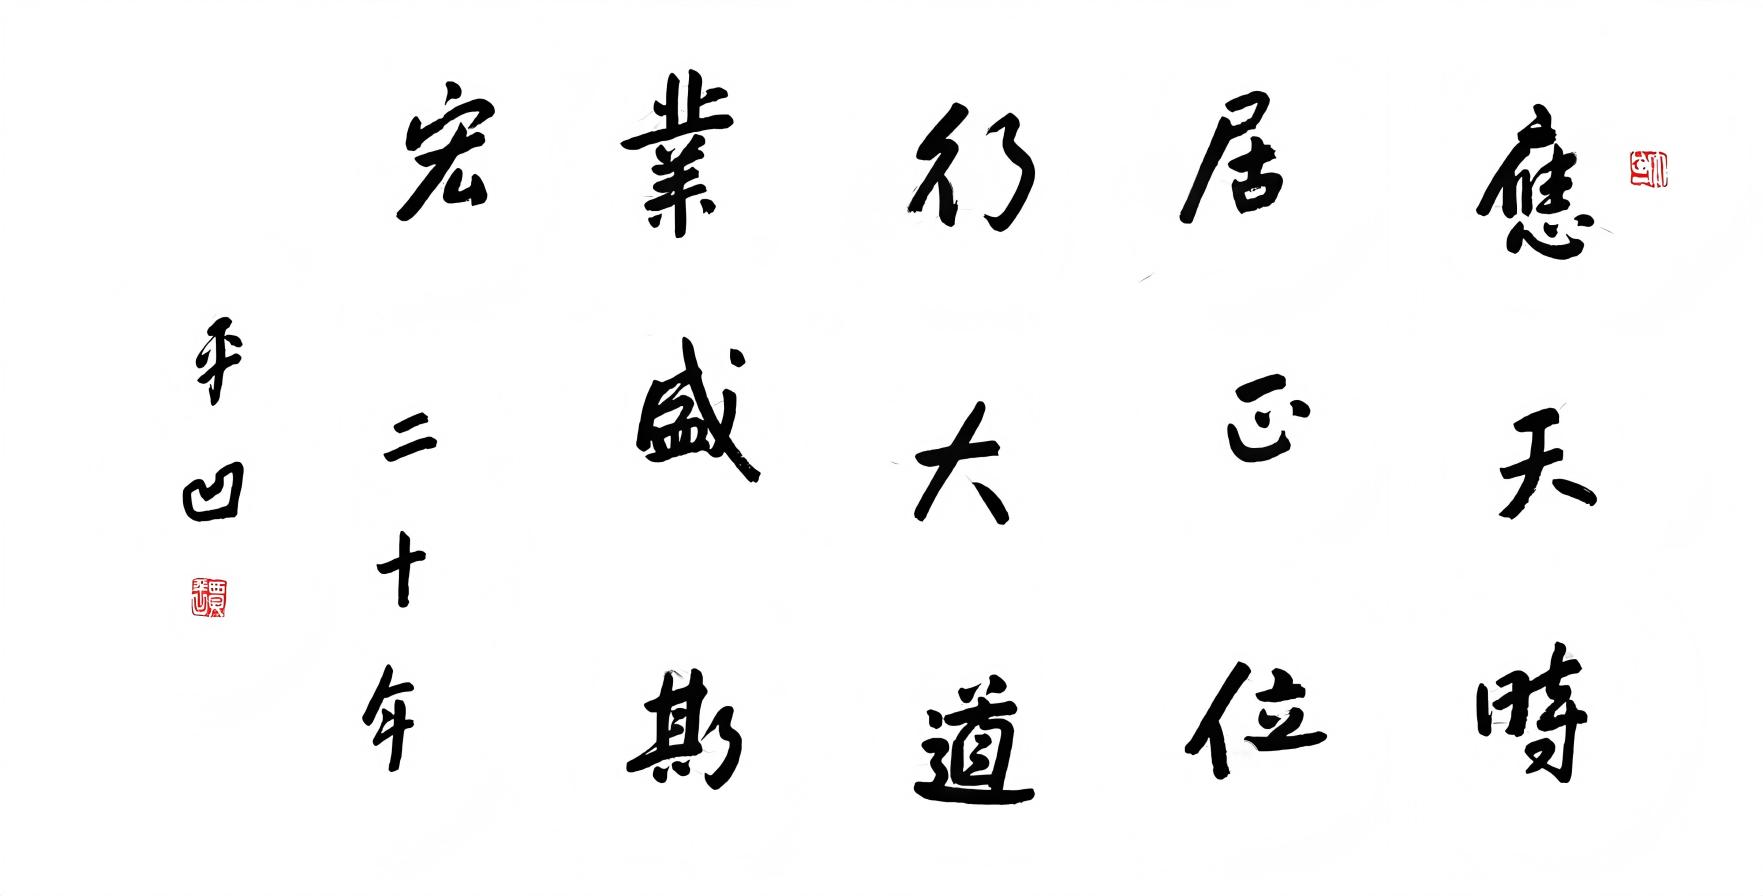 應天時
居正位
行大道
業盛斯
宏 二十年
平凹
賈平凹